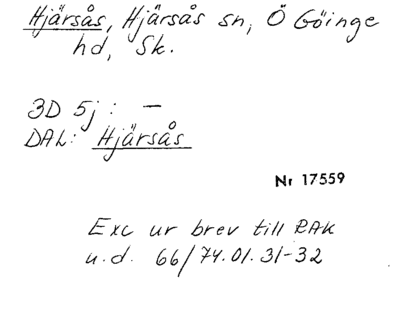 Hjärsås, Hjärsås sn, Ö Göinge
hd, Sk.
3D 5j: —
DAL: Hjärsås
Nr 17559
Exc ur brev till RAK
u.d. 66/74.01.31-32